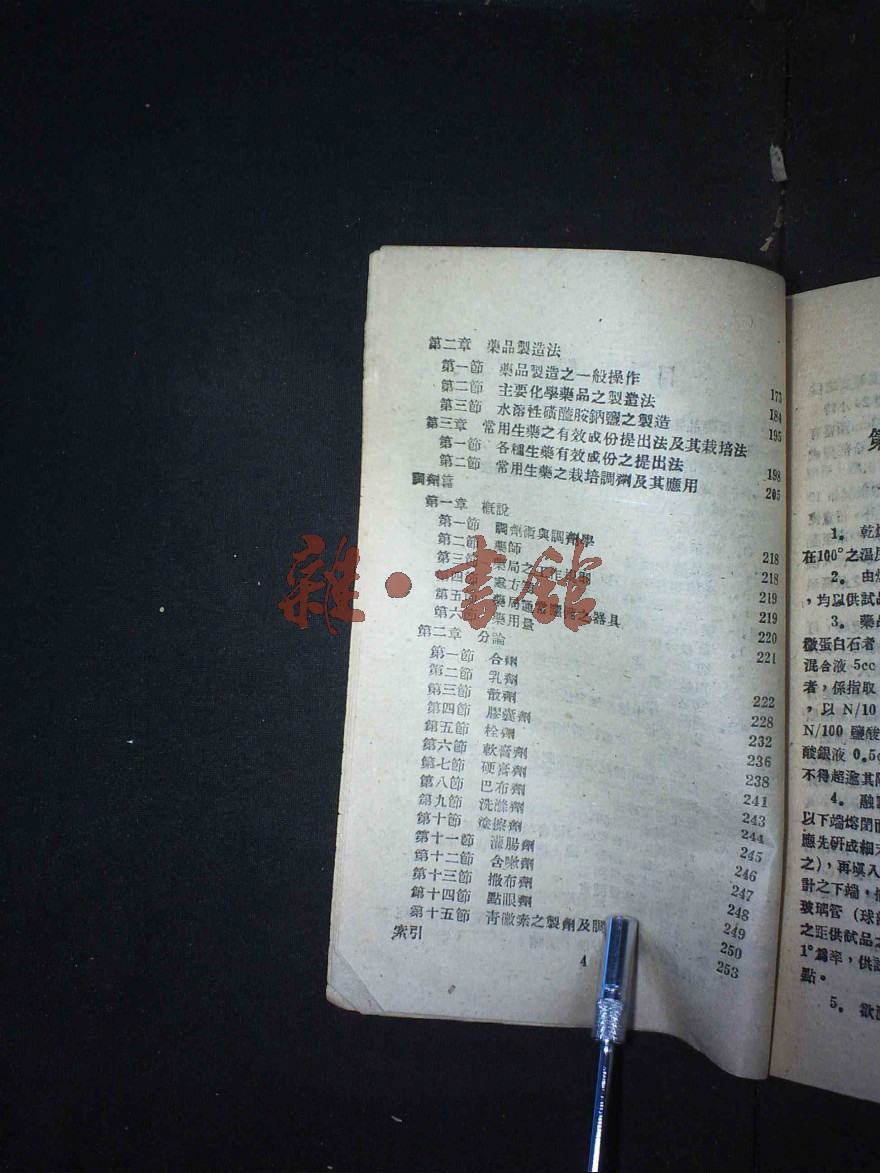 第二章 藥品製造法
第一節 藥品製造之一般操作 173
第二節 主要化學藥品之製造法 184
第三節 水溶性磺醯胺鈉鹽之製造 195
第三章 常用生藥之有效成份提出法及其栽培法
第一節 各種生藥有效成份之提出法 198
第二節 常用生藥之栽培調劑及其應用 205
調劑篇
第一章 概說
第一節 調劑術與調劑學 218
第二節 藥師 218
第三節 藥局之工作 219
第四節 處方 219
第五節 藥局通常 之器具 220
第六節 藥用量 221
第二章 分論
第一節 合劑 222
第二節 乳劑 228
第三節 散劑 232
第四節 膠囊劑 236
第五節 栓劑 238
第六節 軟膏劑 241
第七節 硬膏劑 243
第八節 巴布劑 244
第九節 洗滌劑 245
第十節 塗擦劑 246
第十一節 灌腸劑 247
第十二節 含嗽劑 248
第十三節 撒布劑 249
第十四節 點眼劑 250
第十五節 青黴素之製劑及調 253
索引
4
雜·書館
第
1。 乾燥
在100°之温度
2。 由
，均以供試品
3。 藥品
微蛋白石者
混合液 5cc
者，係指取
，以 N/10
N/100 鹽酸
酸銀液 0.5c
不得超逾其
4。 融
以下端熔閉
應先研成細末
之)，再塡入
計之下端，
玻璃管（球
之距供試品之
1°爲率，供試
點。
5。 欲